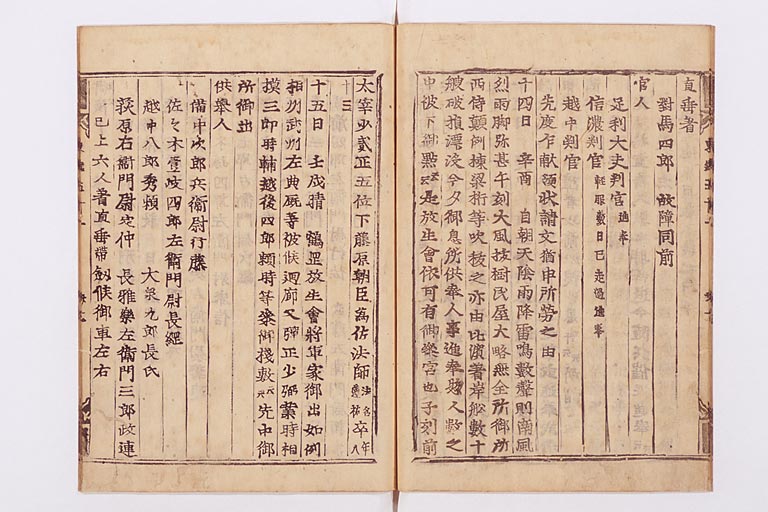 直垂者
對馬四郎 故障同前
官人
足利大夫判官 進奉
信濃判官 軽服數日已走過進奉
越中判官
先度乍献領状請文猶申所勞之由
十四日 辛酉 自朝天陰雨降雷鳴數聲則南風
烈雨脚弥甚午刻大風抜樹民屋大略無全所御所
西侍顛倒棟梁桁等吹抜之亦由比濱著岸舩數十
艘破損漂没今夕御息所供奉人事進奉
中被下御點 是放生會依可有御 宮也子刻前
太宰少貳正五位下藤原朝臣為佐法師 法名蓮祐 卒 年八十三
十五日 壬戌晴 鶴岡放生會將軍家御出如例
相州武州左典厩等被候廻廊又弾正少弼業時相
摸三郎時輔越後四郎顕時等 御棧敷 先 御
所御出
供奉人
備中次郎兵衛尉行藤
佐々木壹岐四郎左衛門尉長綱
越中八郎秀頼 大泉九郎長氏
荻原右衛門尉定仲 長雅樂左衛門三郎政連
已上六人著直垂帯劔候御車左右